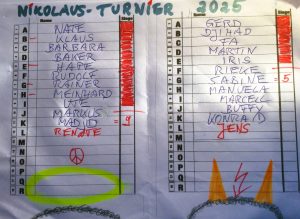 NIKOLAUS-TURNIER 2025
A NATE
B KLAUS
C BARBARA
D BAKER
E HAPE
F RUDOLF
G RAINER
H MEINHARD
I UTE
J MARKUS
K MADJID = 9
L RENATE
M
N
O
P
Q
R
A GERD
B DJIHAD
C UTA
D MARTIN
E IRIS
F RIEKE
G SABINE = 5
H MANUELA
I MARCELL
J BUFFY
K
L JENS
M
N
O
P
Q
R